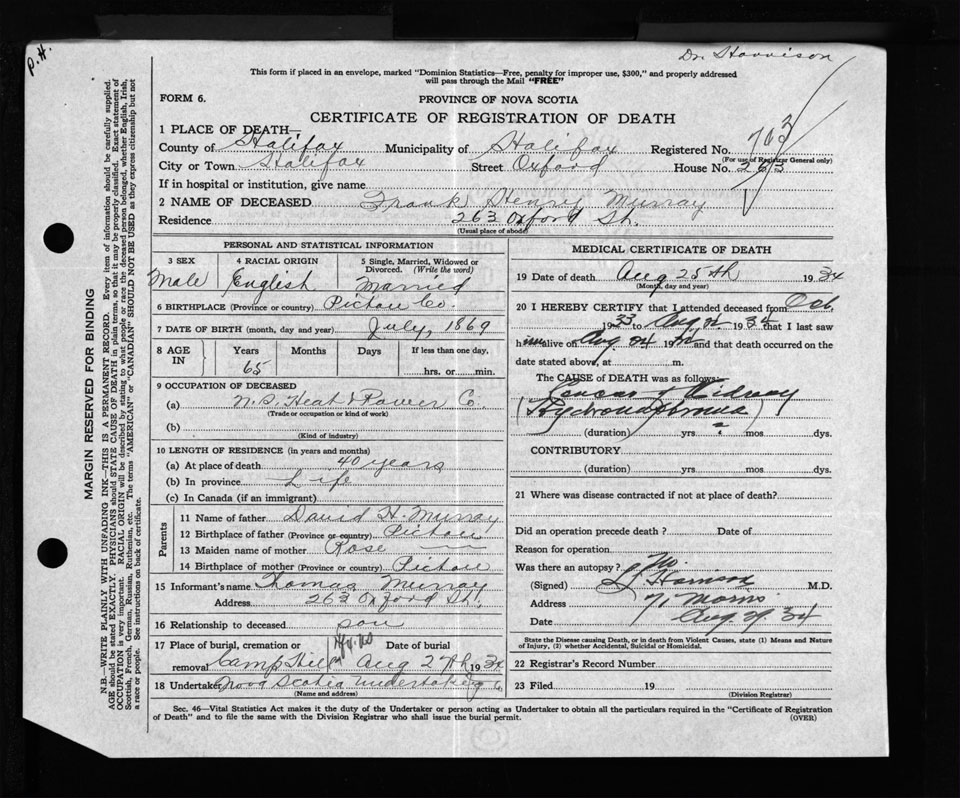 P.H.
Dr Harrison
This form if placed in an envelope, marked "Dominion Statistics—Free, penalty for improper use, $300," and properly addressed
will pass through the Mail "FREE"
FORM 6.
PROVINCE OF NOVA SCOTIA
CERTIFICATE OF REGISTRATION OF DEATH
1 PLACE OF DEATH—
County of Halifax Municipality of Halifax Registered No. 763
(For use of Registrar General only)
City or Town Halifax Street Oxford House No. 263
If in hospital or institution, give name
2 NAME OF DECEASED Frank Henry Murray
Residence 263 Oxford St.
(Usual place of abode)
PERSONAL AND STATISTICAL INFORMATION
3 SEX 4 RACIAL ORIGIN 5 Single, Married, Widowed or
Divorced. (Write the word)
Male English Married
6 BIRTHPLACE (Province or country) Pictou Co.
7 DATE OF BIRTH (month, day and year) July, 1869
8 AGE IN Years Months Days If less than one day,
65 hrs. or min.
9 OCCUPATION OF DECEASED
(a) N.S. Heat & Power Co.
(Trade or occupation or kind of work)
(b)
(Kind of industry)
10 LENGTH OF RESIDENCE (in years and months)
(a) At place of death 40 years
(b) In province Life
(c) In Canada (if an immigrant)
Parents
11 Name of father David H. Murray
12 Birthplace of father (Province or country) Pictou
13 Maiden name of mother Rose —
14 Birthplace of mother (Province or country) Pictou
15 Informant's name Thomas Murray
Address 263 Oxford St.
16 Relationship to deceased son
17 Place of burial, cremation or Date of burial
removal Camp Hill Aug 27th 1934
18 Undertaker Nova Scotia Undertaking Co
(Name and address)
MEDICAL CERTIFICATE OF DEATH
19 Date of death Aug 25th 1934
(Month, day and year)
20 I HEREBY CERTIFY that I attended deceased from
1933 to Aug 1934 that I last saw
him alive on Aug. 24 19 and that death occurred on the
date stated above, at m.
The CAUSE of DEATH was as follows:
Cancer Kidney
(Hydronephrosis)
(duration) yrs ? mos dys.
CONTRIBUTORY
(duration) yrs. mos. dys.
21 Where was disease contracted if not at place of death?
Did an operation precede death? Date of
Reason for operation
Was there an autopsy? No
(Signed) Harrison M.D.
Address 71 Morris
Date Aug. 29. 34
State the Disease causing Death, or in death from Violent Causes, state (1) Means and Nature
of Injury, (2) whether Accidental, Suicidal or Homicidal.
22 Registrar's Record Number
23 Filed 19
(Division Registrar)
Sec. 46—Vital Statistics Act makes it the duty of the Undertaker or person acting as Undertaker to obtain all the particulars required in the "Certificate of Registration
of Death" and to file the same with the Division Registrar who shall issue the burial permit. (OVER)
MARGIN RESERVED FOR BINDING
N.B.—WRITE PLAINLY WITH UNFADING INK—THIS IS A PERMANENT RECORD. Every item of information should be carefully supplied.
AGE should be stated EXACTLY. PHYSICIANS should STATE CAUSE OF DEATH in plain terms, so that it may be properly classified. Exact statement of
OCCUPATION is very important. RACIAL ORIGIN will be described by stating to what people or race the deceased person belonged, whether English, Irish,
Scottish, French, German, Russian, Ruthenian, etc. The terms "AMERICAN" or "CANADIAN" SHOULD NOT BE USED as they express citizenship but not
a race or people. See instructions on back of certificate.